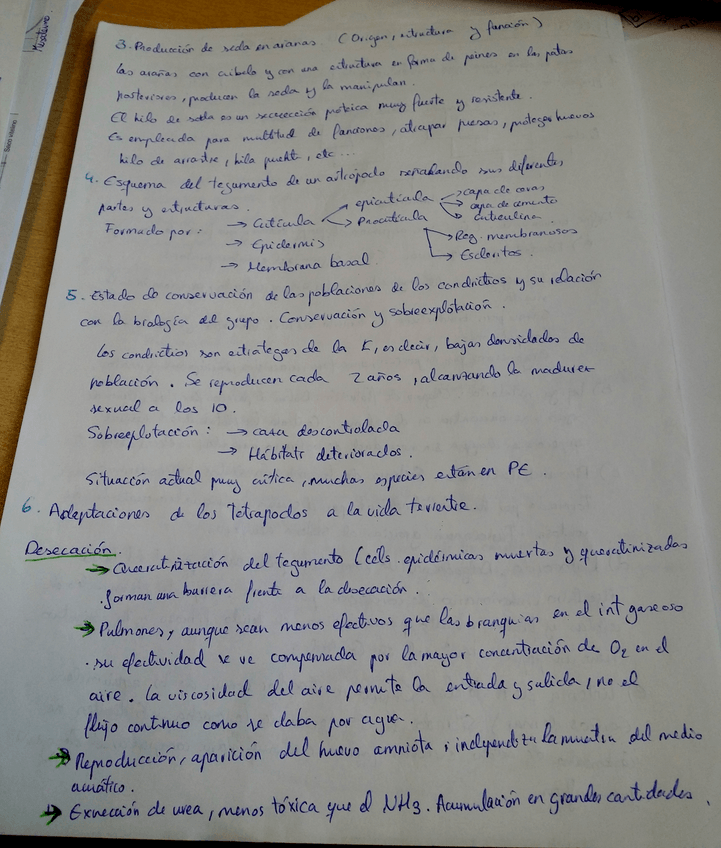 Nosotros
3. Producción de seda en arañas. (Origen, estructura y función)
Las arañas con cribelo y con una estructura en forma de peines en las patas
posteriores, producen la seda y la manipulan.
El hilo de seda es un secrección proteica muy fuerte y resistente.
Es empleada para multitud de funciones, atrapar presas, proteger huevos
hilo de arrastre, hilo puente, etc...
4. Esquema del tegumento de un artrópodo señalando sus diferentes
partes y estructuras.
Formado por: → Cutícula epicutícula capa de ceras
capa de cemento
Procutícula cuticulina
→ Epidermis → Reg. membranosas
→ Membrana basal → Escleritos.
5. Estado de conservación de las poblaciones de los condrictios y su relación
con la biología del grupo. Conservación y sobreexplotación.
Los condrictios son estrategas de la K, es decir, bajas densidades de
población. Se reproducen cada 2 años, alcanzando la madurez
sexual a los 10.
Sobreexplotación: → caza descontrolada
→ Hábitats deteriorados.
Situación actual muy crítica, muchas especies están en PE.
6. Adaptaciones de los Tetrápodos a la vida terrestre.
Desecación.
→ Queratinización del tegumento (cels. epidérmicas muertas y queratinizadas
forman una barrera frente a la desecación.
→ Pulmones, aunque sean menos efectivos que las branquias en el int gaseoso
su efectividad se ve compensada por la mayor concentración de O2 en el
aire. La viscosidad del aire permite la entrada y salida, no el
flujo continuo como se daba por agua.
→ Reproducción, aparición del huevo amniota, independiza la puesta del medio
acuático.
→ Excreción de urea, menos tóxica que el NH3. Acumulación en grandes cantidades.